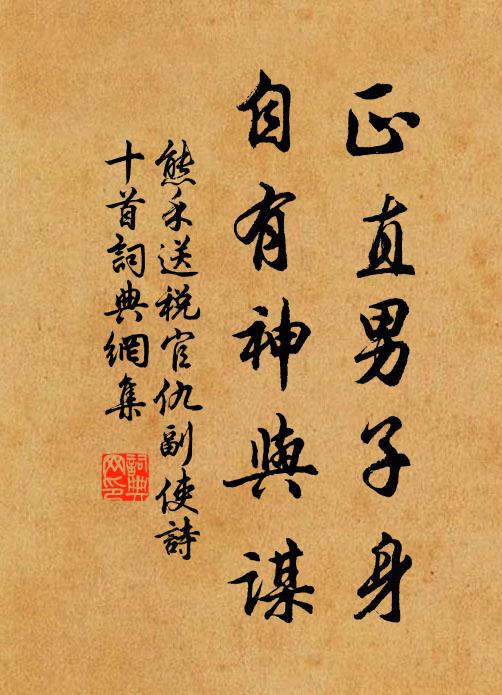 正直男子身
自有神與謀
熊禾送税官仇副使詩
十首詞典網集
詞典
网印